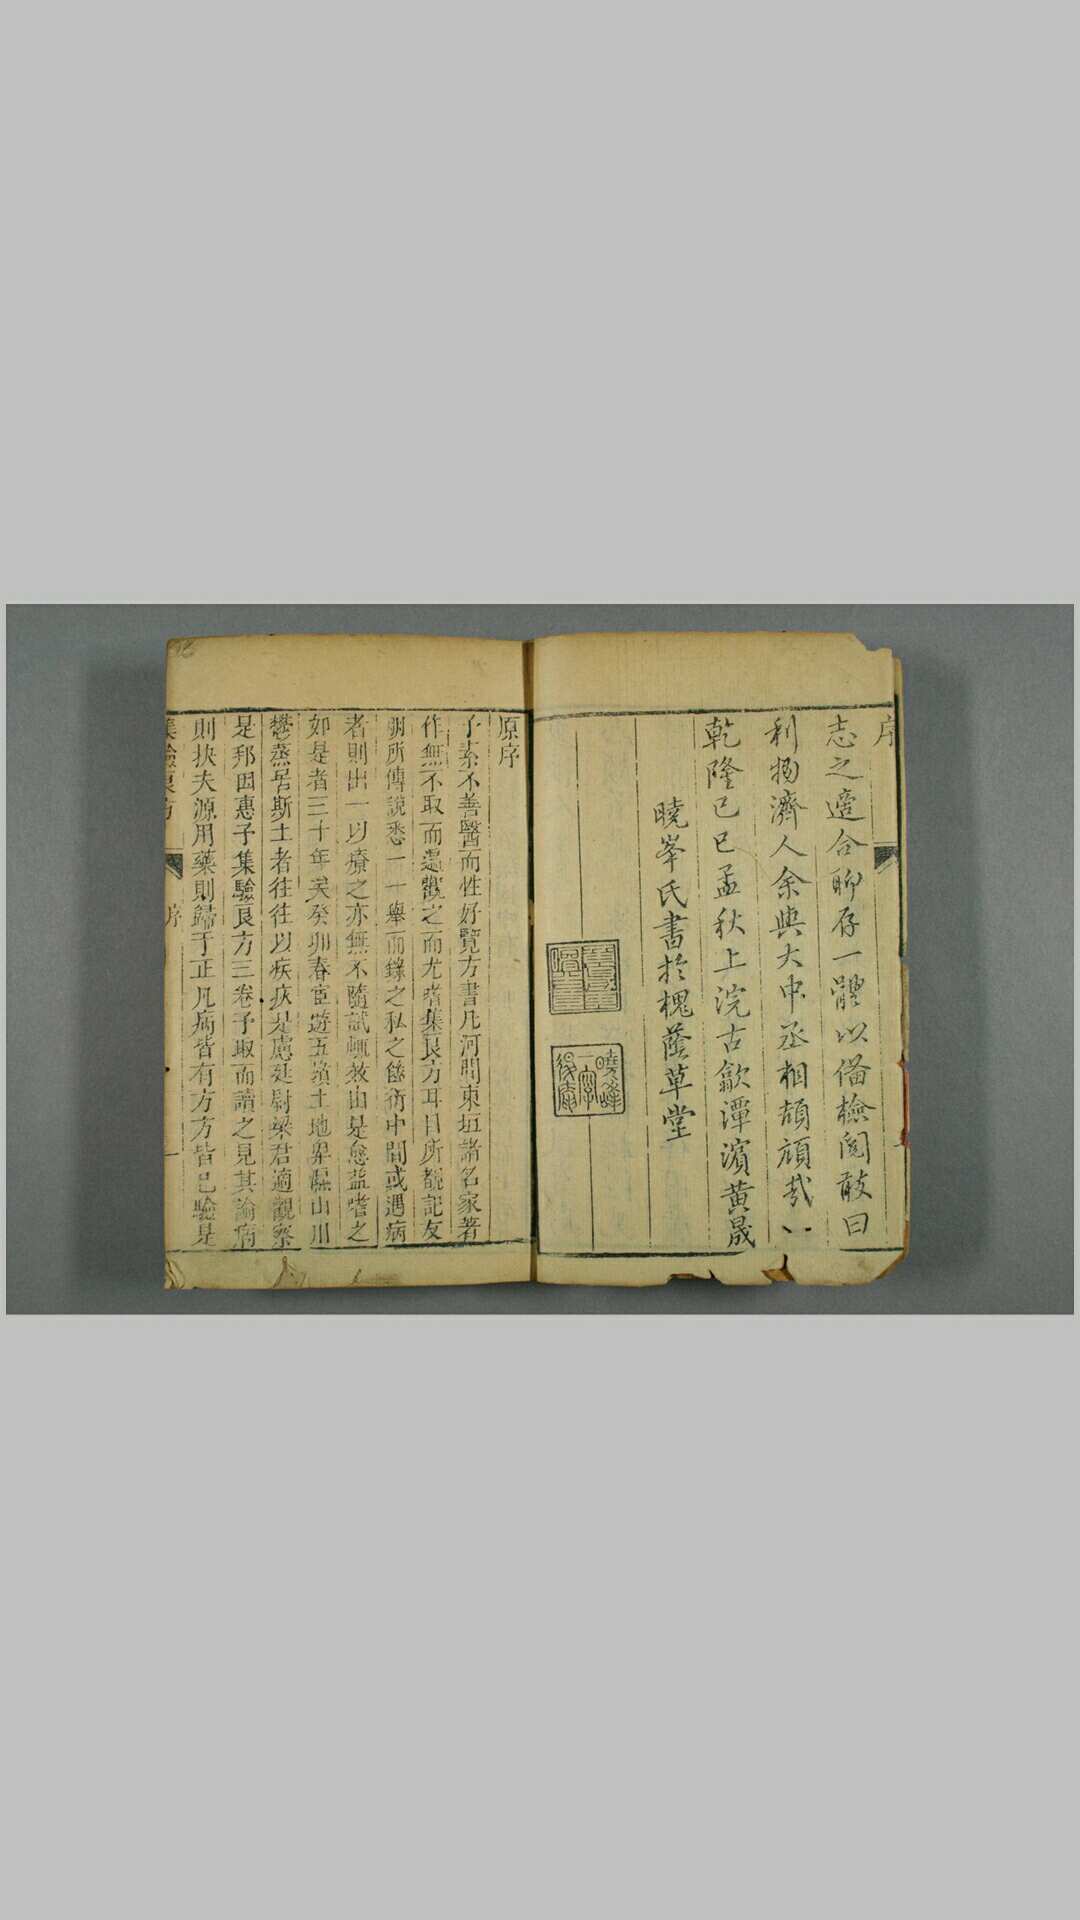 序
志之適合聊存一體以俻檢閱敢曰
利物濟人余與大中丞相頡頏哉
乾隆己巳孟秋上浣古歙潭濱黃晟
曉峯氏書於槐蔭草堂
曉峰
一字
原序
予素不善醫而性好覽方書凡河間東垣諸名家著
作無不取而還觀之而尤嗜集良方耳目所覩記友
朋所傳說悉一一舉而錄之私之篋衍中間或遇病
者則出一以療之亦無不隨試輒效由是愈益嗜之
如是者三十年矣癸卯春宦遊五嶺土地卑濕山川
鬱蒸居斯土者往往以疾疢是慮廷尉梁君適觀察
是邦因惠予集驗良方三卷予取而讀之見其論病
則抉夫源用藥則歸于正凡病皆有方方皆已驗是
集驗良方
序
一